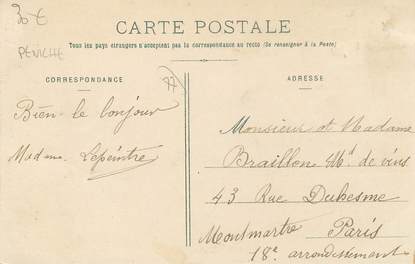 30 €
PENICHE
77
CARTE POSTALE
Tous les pays étrangers n'acceptent pas la correspondance au recto (Se renseigner à la Poste)
CORRESPONDANCE
Bien le bonjour
Madame Lepeintre
ADRESSE
Monsieur et Madame
Braillon Md de vins
43 Rue Duhesme
Montmartre Paris
18e arrondissement